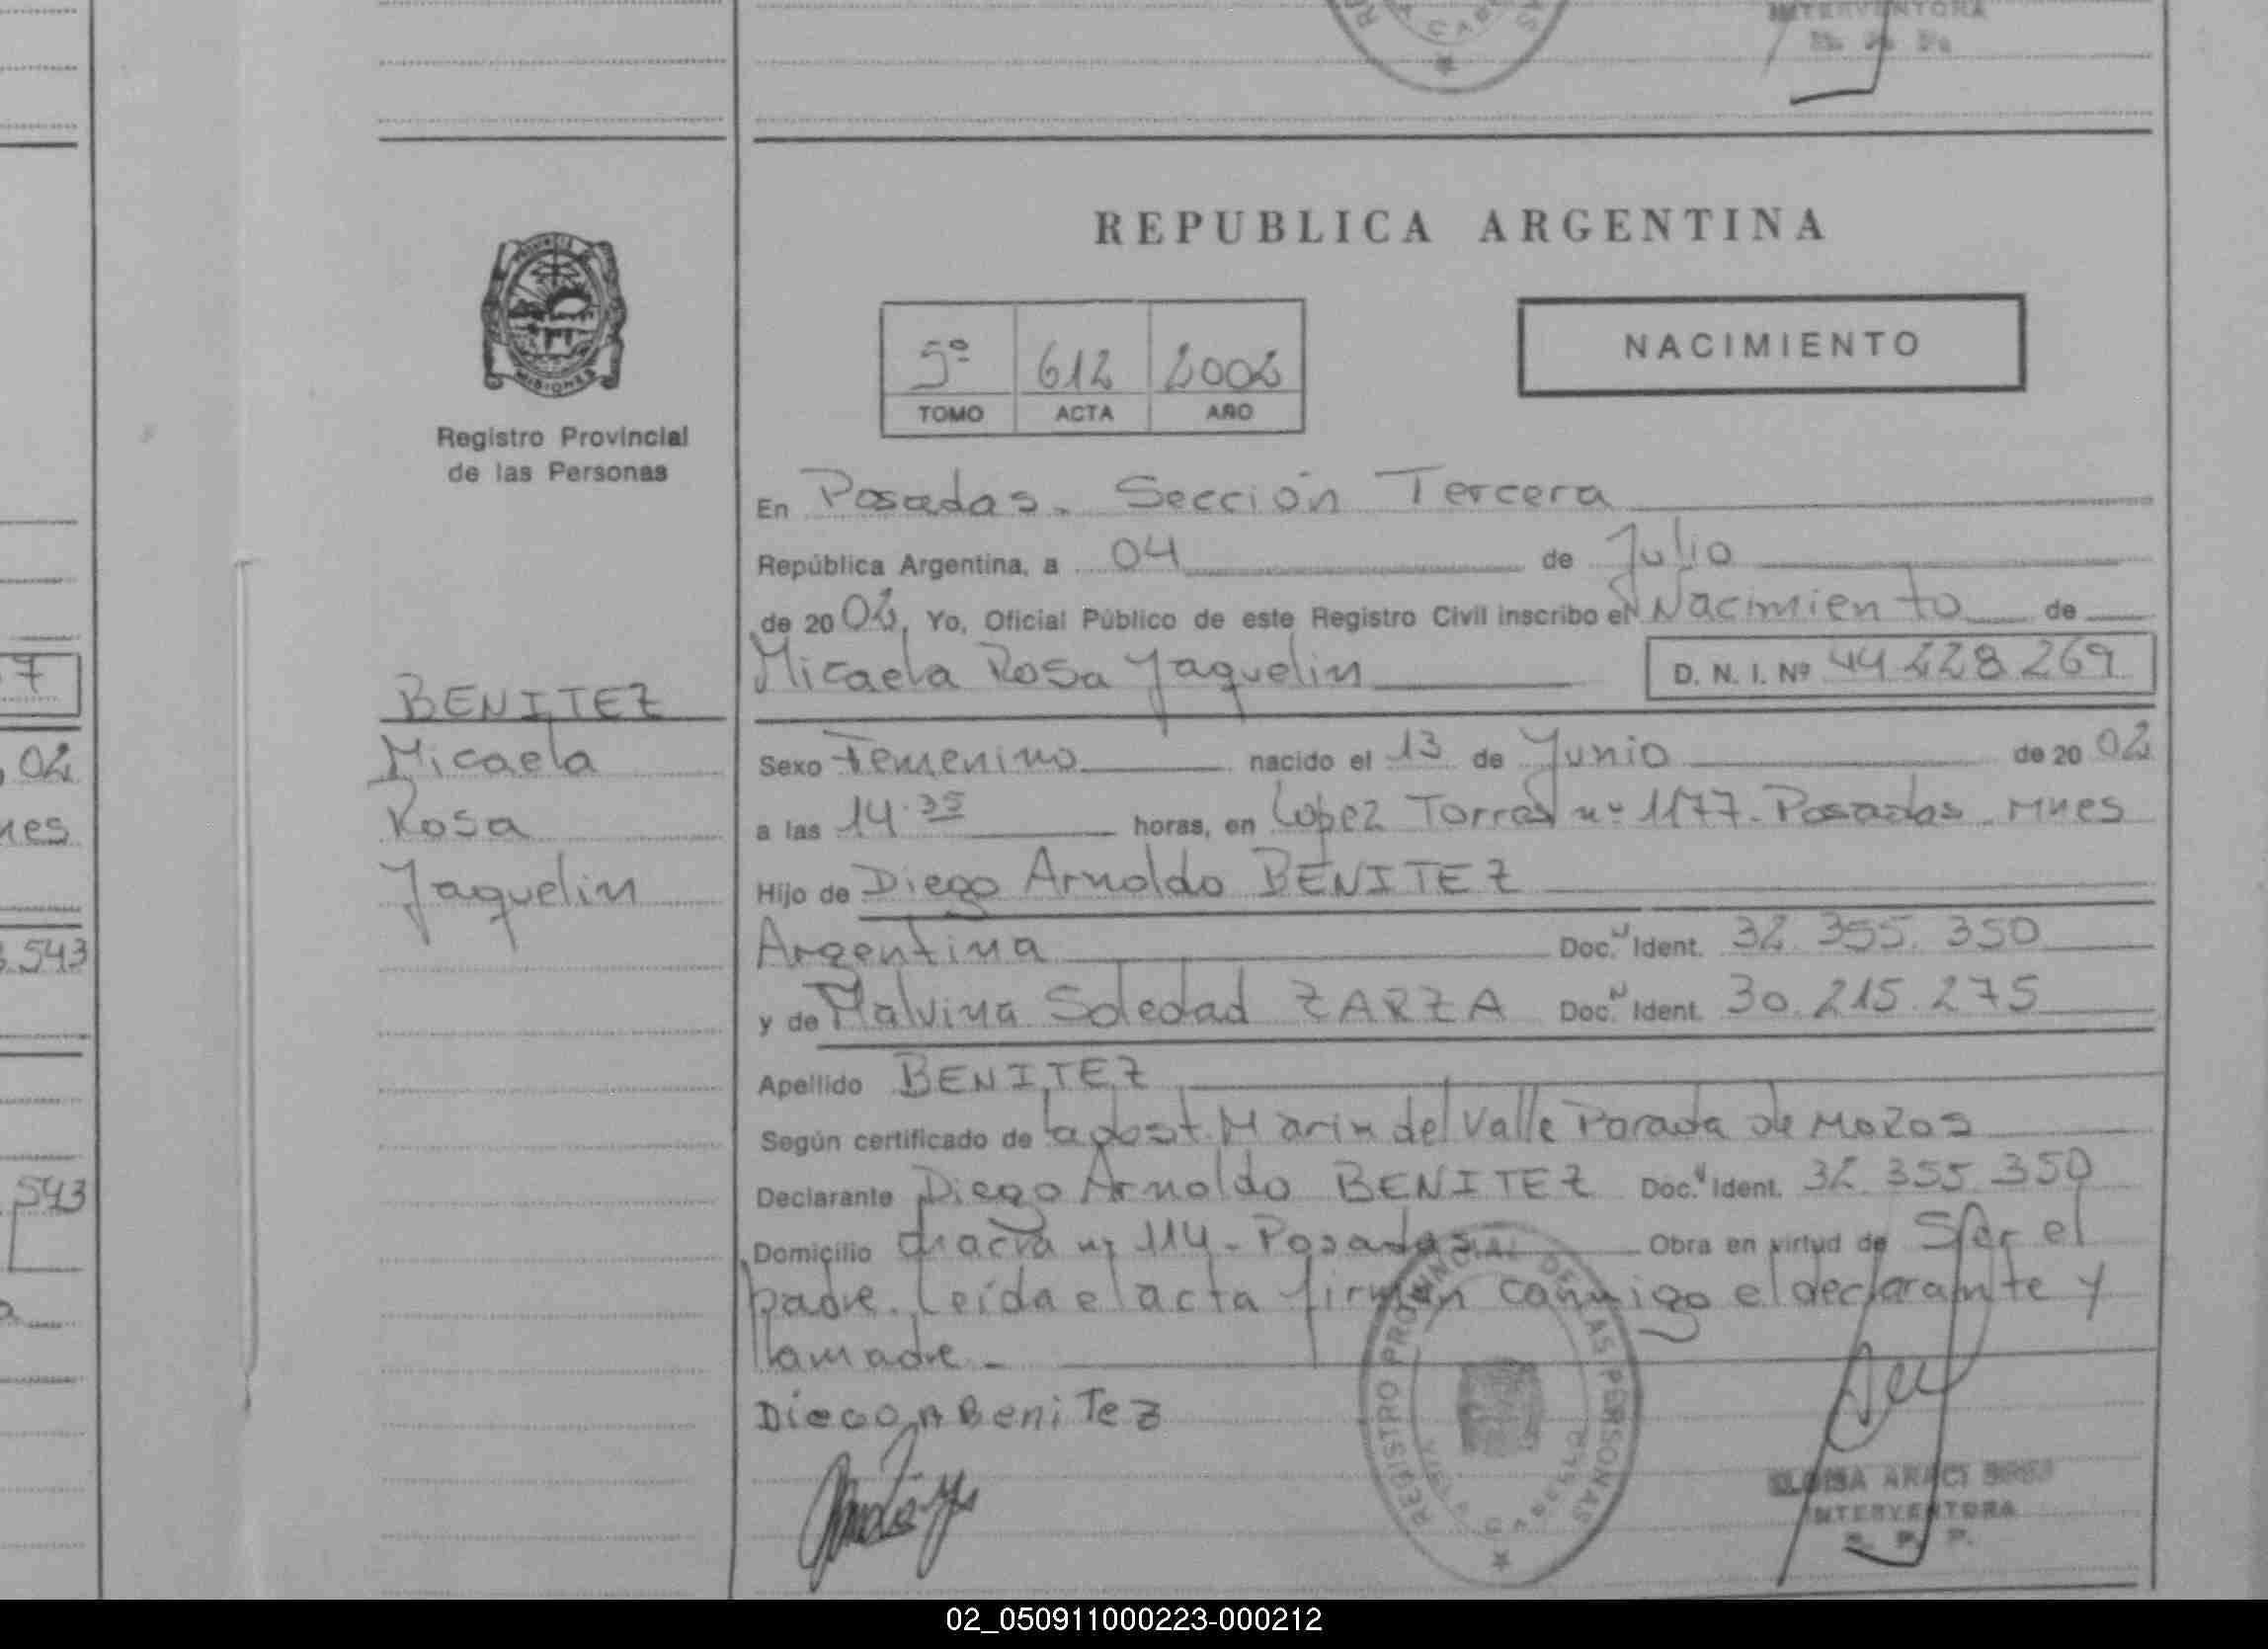 INTERVENTORA
REPUBLICA ARGENTINA
PROVINCIA DE
MISIONES
5º 612 2002
TOMO ACTA AÑO
NACIMIENTO
Registro Provincial
de las Personas
En Posadas. Sección Tercera
República Argentina, a 04 de Julio
de 20 02, Yo, Oficial Público de este Registro Civil inscribo el Nacimiento de
Micaela Rosa Jaquelin D. N. I. Nº 44 228 269
BENITEZ
Micaela
Rosa
Jaquelin
Sexo Femenino nacido el 13 de Junio de 20 02
a las 14.35 horas, en Lopez Torres nº 1177. Posadas. Mnes
Hijo de Diego Arnoldo BENITEZ
Argentina Doc. Ident. 32.355.350
y de Malvina Soledad ZARZA Doc. Ident. 30.215.275
Apellido BENITEZ
Según certificado de la obst. Maria del Valle Parada de Mozos
Declarante Diego Arnoldo BENITEZ Doc. Ident. 32.355.350
Domicilio chacra nº 114 - Posadas Obra en virtud de Ser el
padre. Leída el acta firman conmigo el declarante y
la madre.
Diego A Benitez
REGISTRO PROVINCIAL DE LAS PERSONAS
INTERVENTORA
R. P. P.
7
02
nes
543
543
02_050911000223-000212